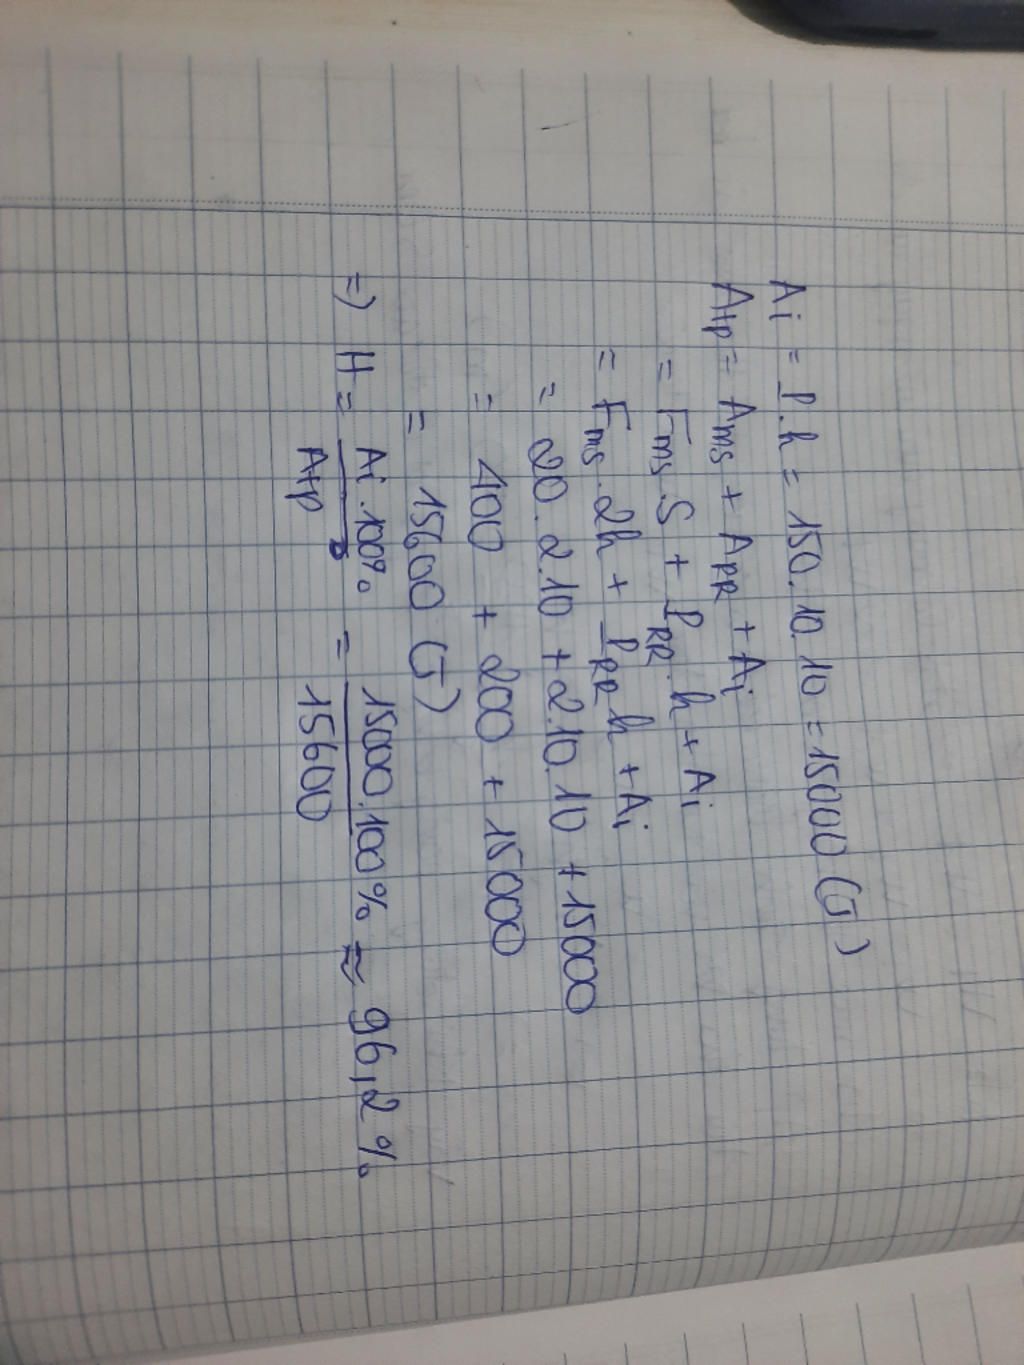 Ai = P.h = 150.10.10 = 15000 (J)
Atp = Ams + ARR + Ai
= Fms.S + PRR.h + Ai
= Fms.2h + PRR h + Ai
= 20.2.10 + 2.10.10 + 15000
= 400 + 200 + 15000
= 15600 (J)
=) H = Ai.100% / Atp = 15000.100% / 15600 ≈ 96,2%